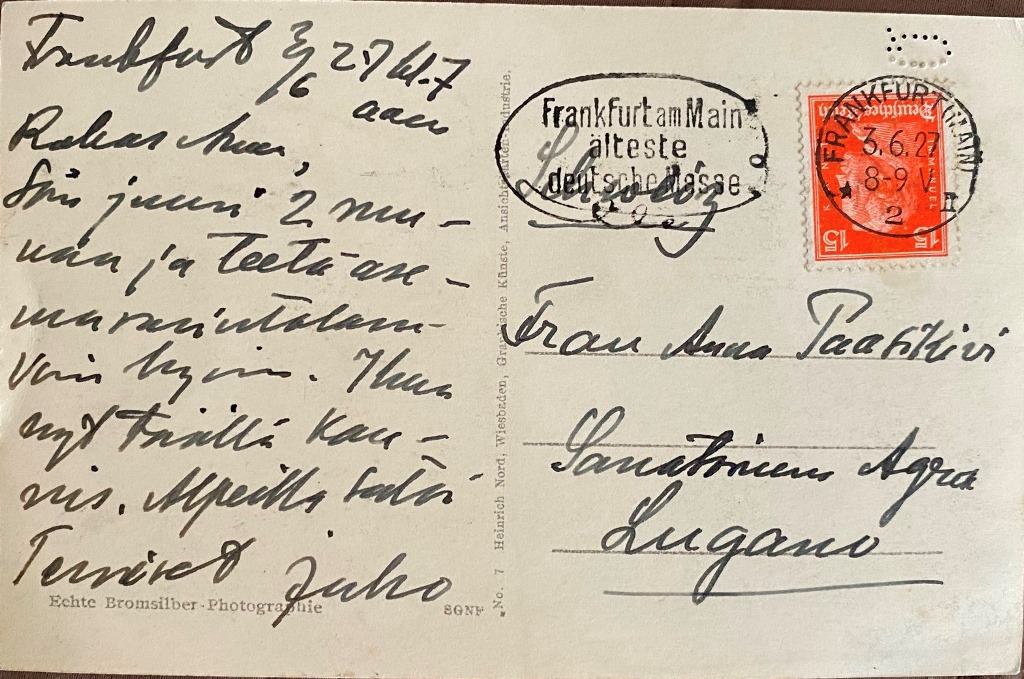 Frankfurt 3/6 27 kl. 7
aam
Rakas Anna,
Söin juuri 2 mu-
naa ja teetä ase-
maravintolan-
Ihan
nyt täällä kau-
nis. Alpeilla satoi
Terveiset Juho
Echte Bromsilber-Photographie
SGNF
No. 7 Heinrich Nord, Wiesbaden, Graphische Künste, Ansichtkarten-Industrie.
Frankfurt am Main
älteste
deutsche Messe
Schweiz
FRANKFURT (MAIN)
3.6.27
8-9 V
2 II
Deutsches Reich
15 15
Frau Anna Paatikivi
Sanatorium Agra
Lugano